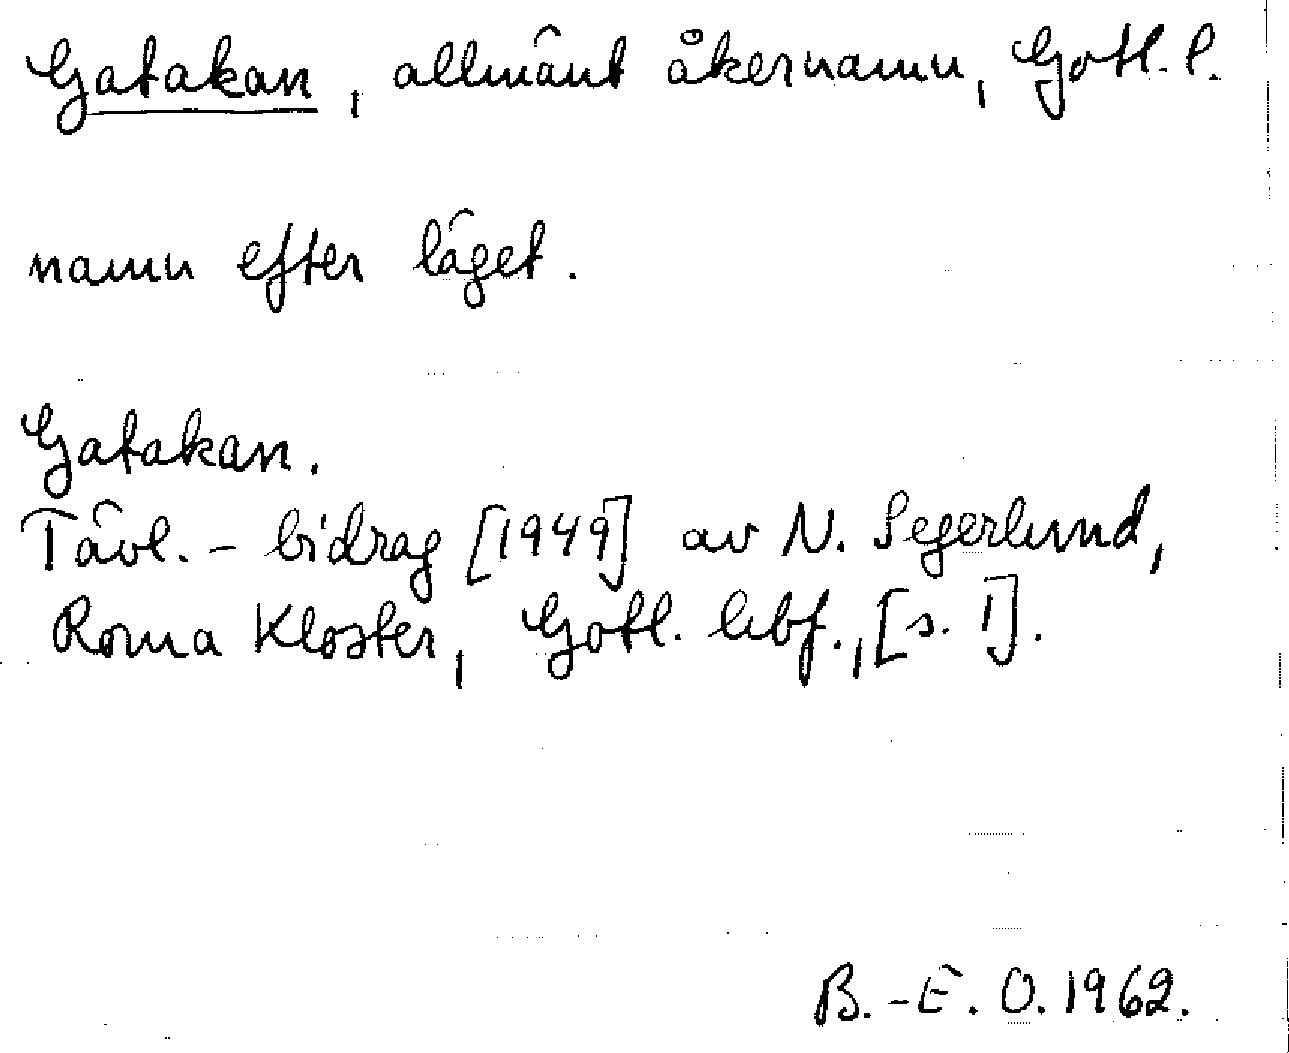 Gatakan, allmänt åkernamn, Gotl. l.
namn efter läget.
Gatakan.
Tävl. - bidrag [1949] av N. Segerlund,
Roma Kloster, Gotl. lbf., [s. 1].
B.-E. O. 1962.